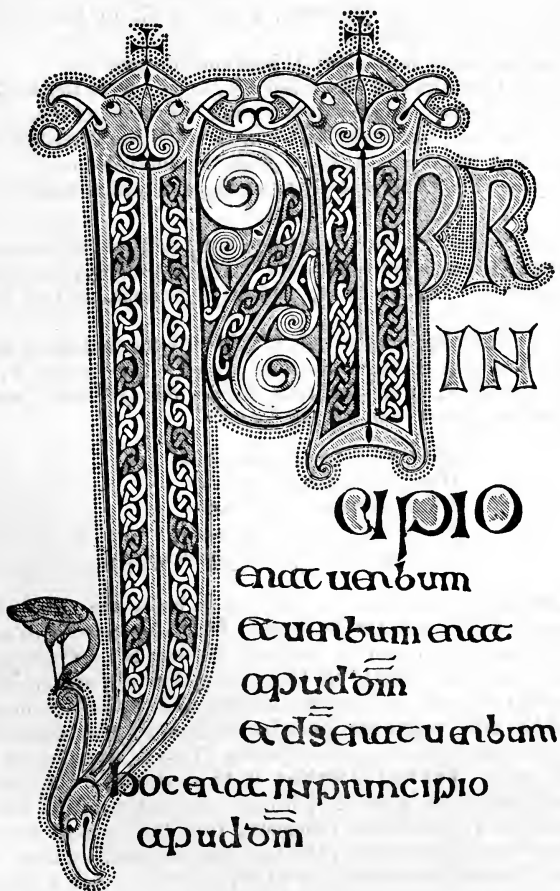 INPR
IN
cipio
erat uerbum
et uerbum erat
apud dm̄
et ds̄ erat uerbum
hoc erat in principio
apud dm̄